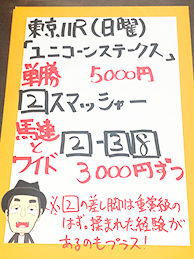 東京11R(日曜)
「ユニコーンステークス」
単勝 5000円
2スマッシャー
馬連とワイド 2-3 8
3000円ずつ
※2の差し脚は重賞級の
はず。揉まれた経験が
あるのもプラス!